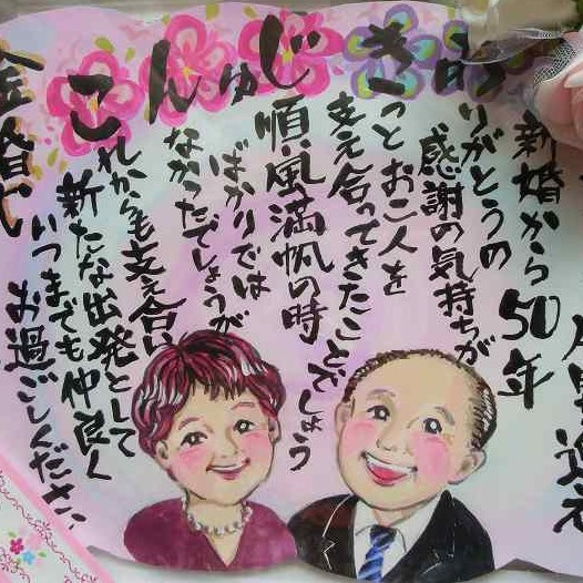 こんゅじ き
金婚式
を迎え
新婚から50年
りがとうの
感謝の気持ちが
っとお二人を
支え合ってきたことでしょう
順風満帆の時
ばかりでは
なかったでしょうが
れからも支え合い
新たな出発として
いつまでも仲良く
お過ごしください